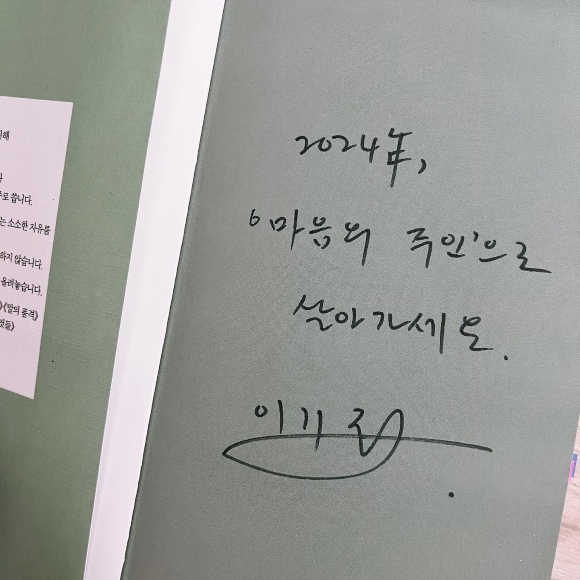 해
로 씁니다.
는 소소한 자유를
하지 않습니다.
올려놓습니다.
《말의 품격》
것들》
2024年,
'마음의 주인'으로
살아가세요.
이기주